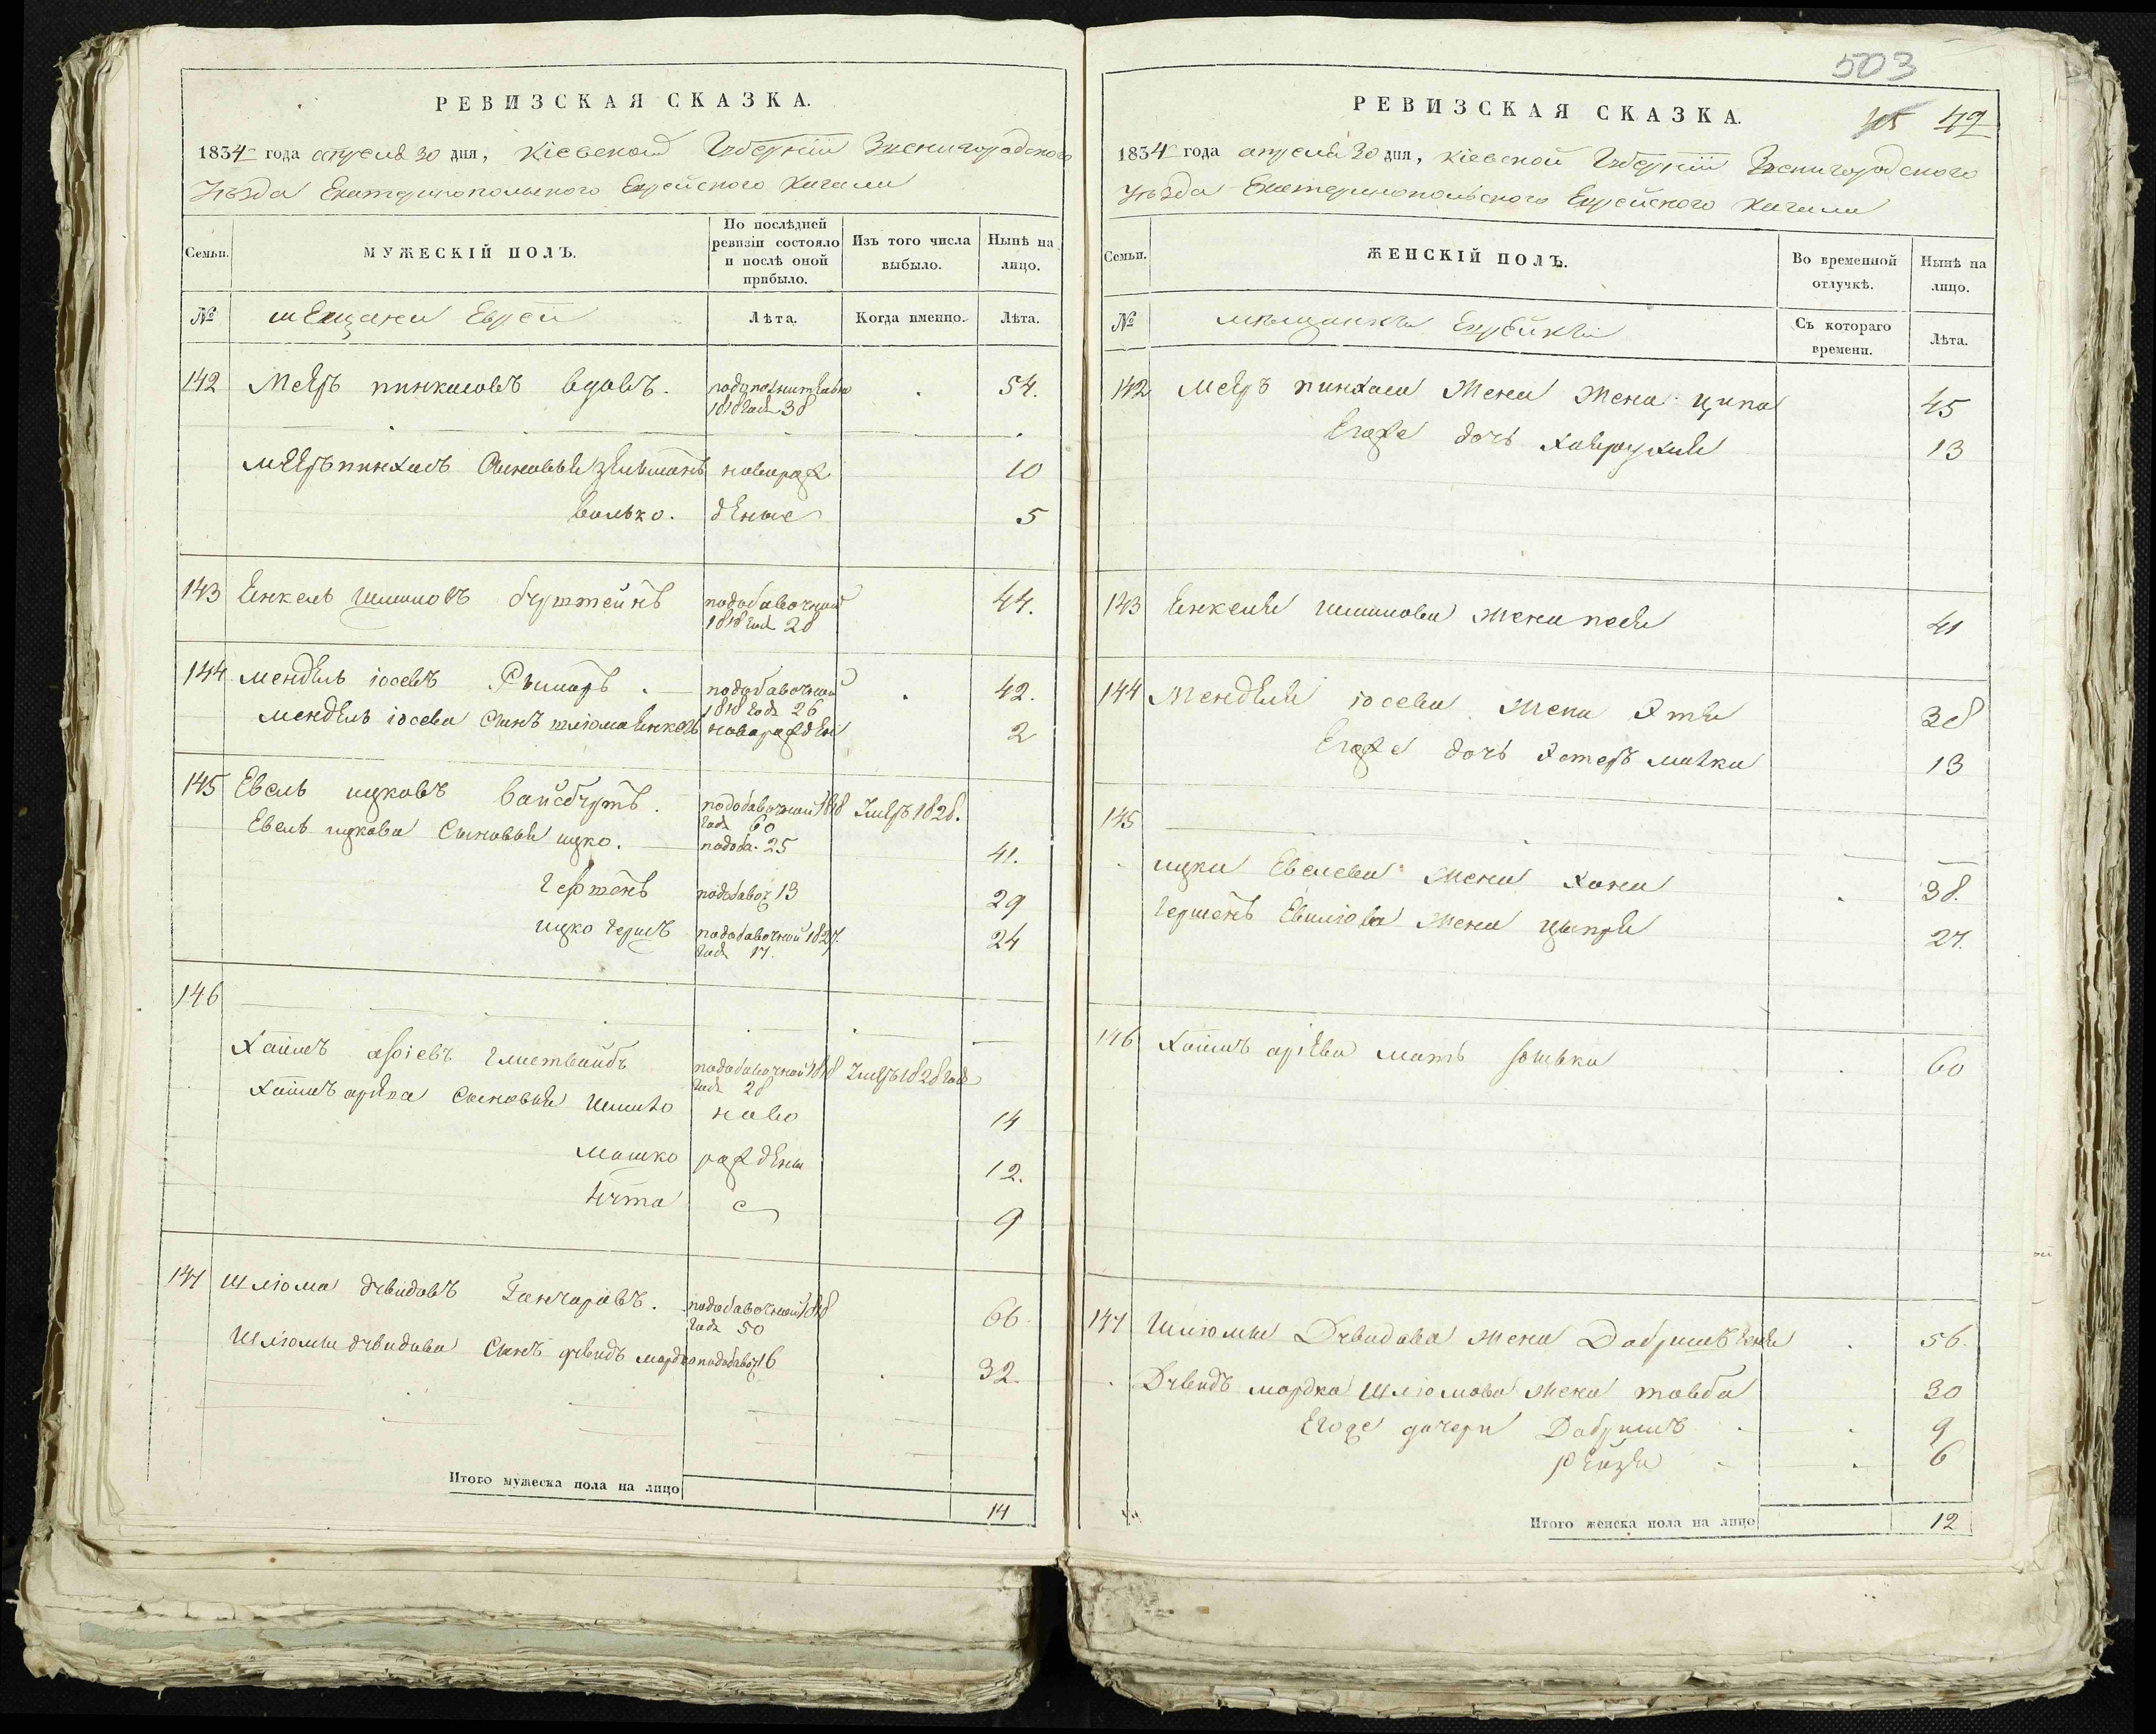 РЕВИЗСКАЯ СКАЗКА.
1834 года апреля 30 дня, Кіевской Губерніи Звенигородского
Уѣзда Екатеринопольского Еврейского Кагала
Семьи. МУЖЕСКІЙ ПОЛЪ. По послѣдней ревизіи состояло и послѣ оной прибыло. Изъ того числа выбыло. Нынѣ на лицо.
№ мещани Евреи Лѣта. Когда именно. Лѣта.
142 Мееръ пинкасовъ вдовъ. 54.
1818 года 38
Мееръ пинхасъ Сыновья зельманъ новорож 10
волько. деные 5
143 Енкель Шимоновъ подобавочной 44.
1818 год 28
144 Мендель іосевъ Рымаръ. подобавочной 42.
1818 года 26
Мендель іосева сынъ шліома енкель новорожден 2
145 Евель ицковъ подобавочной 1818 Умеръ 1828.
года 60
Евель ицкова Сыновья ицко. подоба. 25 41.
Гершенъ подобавоч 13 29
ицко гершъ подобавочной 1827. 24
года 17.
146
Хаимъ аріевъ подобавочной 1818 Умеръ 1828 года
года 28
Хаимъ Сыновья ново 14
Мошко рожденые 12.
Нута 9
147 Шліома дувидовъ Ганчаровъ. подобавочной 1818 66
года 50
Шліомы дувидова Сынъ дувидъ мордко подобавоч 16 32.
Итого мужеска пола на лицо 14
503
РЕВИЗСКАЯ СКАЗКА. 49
1834 года апреля 30 дня, Кіевской Губерніи Звенигородского
Уѣзда Екатеринопольского Еврейского Кагала
Семьи. ЖЕНСКІЙ ПОЛЪ. Во временной отлучкѣ. Нынѣ на лицо.
№ мѣщанки Еврейки Съ котораго времени. Лѣта.
142 Мееръ пинхаса Жена ципа 45
Егоже дочь 13
143 Енкеля Шимонова жена песя 41
144 Менделя іосева Жена Этя 38
Егоже дочь Эстеръ малка 13
145
ицки Евелева Жена Хана 38.
Гершенъ Жена 27.
146 Хаимъ аріева мать 60
147 Шліомы Дувидова жена Добришъ 56.
Дувидъ мордка Шліомова Жена товба 30
Егоже дочери Добришъ 9
рейзя 6
Итого женска пола на лицо 12